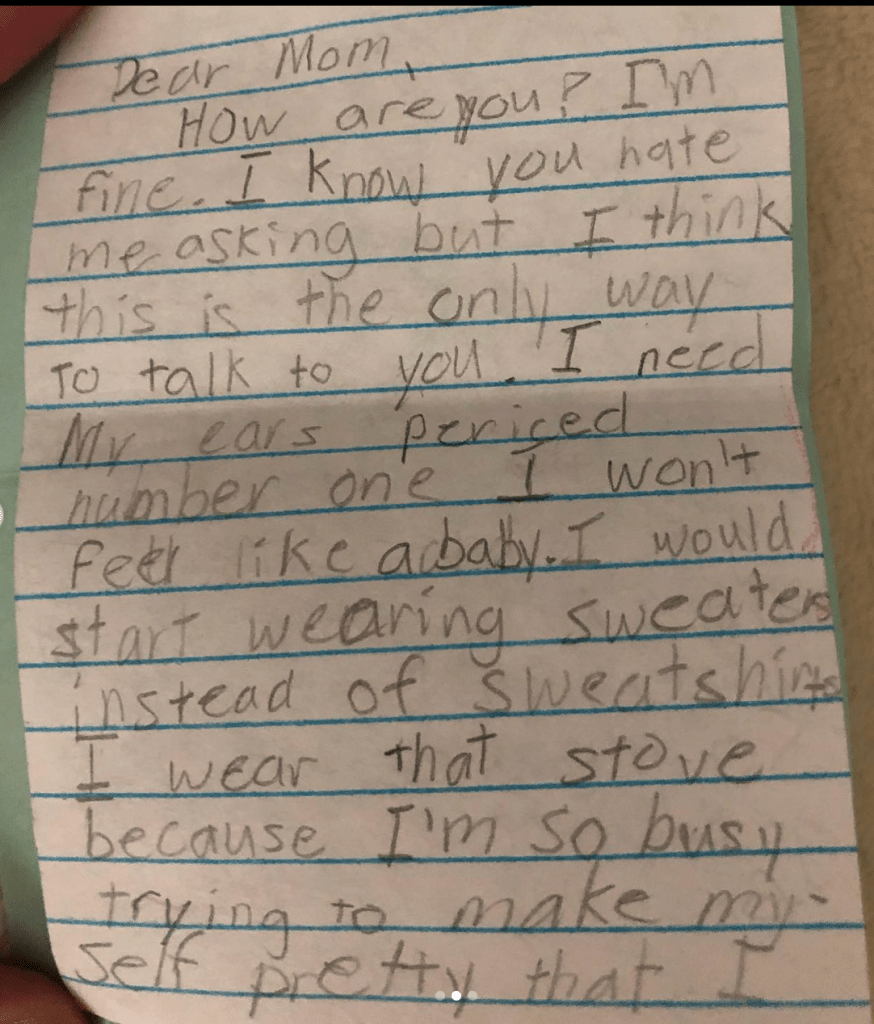 Dear Mom,
How are you? I'm
fine. I know you hate
me asking but I think
this is the only way
To talk to you. I need
My ears periced
number one I won't
feel like a baby. I would
start wearing sweaters
instead of sweatshirts
I wear that stove
because I'm so busy
trying to make my-
self pretty that I